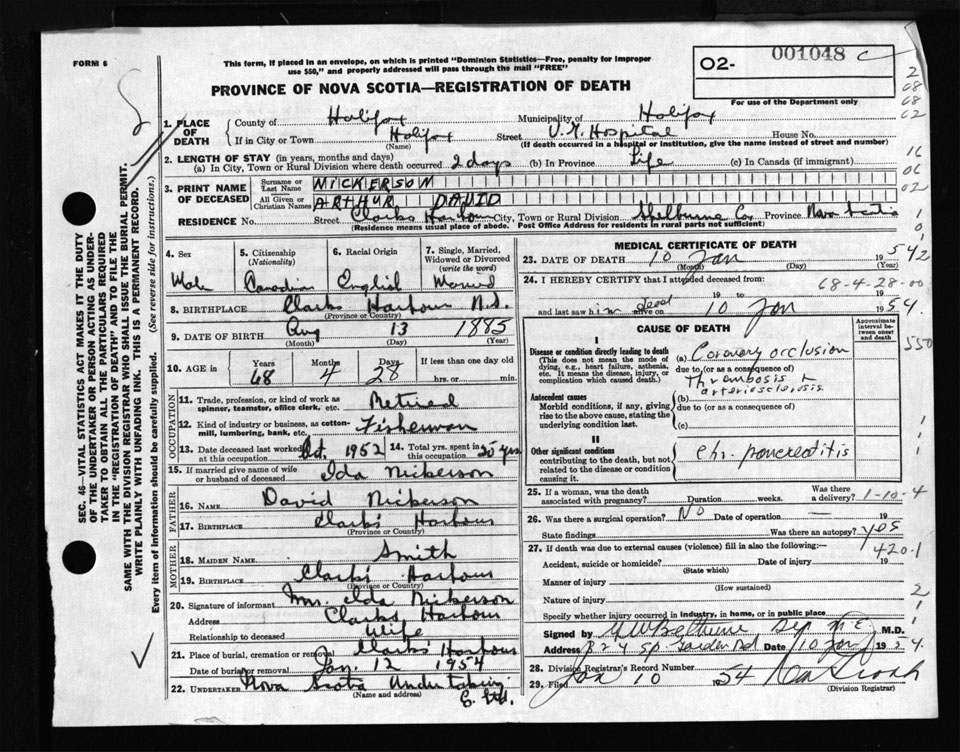 FORM 6
This form, if placed in an envelope, on which is printed "Dominion Statistics—Free, penalty for improper
use $50," and properly addressed will pass through the mail "FREE"
PROVINCE OF NOVA SCOTIA—REGISTRATION OF DEATH
O2-
001048 C
For use of the Department only
1. PLACE OF DEATH
County of Halifax Municipality of Halifax
If in City or Town Halifax Street V.G. Hospital House No.
(Name) (If death occurred in a hospital or institution, give the name instead of street and number)
2. LENGTH OF STAY (in years, months and days)
(a) In City, Town or Rural Division where death occurred 2 days (b) In Province Life (c) In Canada (if immigrant)
3. PRINT NAME OF DECEASED
Surname or Last Name NICKERSON
All Given or Christian Names ARTHUR DAVID
RESIDENCE No. Street Clarks Harbour City, Town or Rural Division Shelburne Co. Province Nova Scotia
(Residence means usual place of abode. Post Office Address for residents in rural parts not sufficient)
4. Sex
Male
5. Citizenship (Nationality)
Canadian
6. Racial Origin
English
7. Single, Married, Widowed or Divorced (write the word)
Married
8. BIRTHPLACE Clarks Harbour N.S.
(Province or Country)
9. DATE OF BIRTH Aug 13 1885
(Month) (Day) (Year)
10. AGE in Years Months Days If less than one day old
68 4 28 hrs. or min.
OCCUPATION
11. Trade, profession, or kind of work as spinner, teamster, office clerk, etc. Retired
12. Kind of industry or business, as cotton-mill, lumbering, bank, etc. Fisherman
13. Date deceased last worked at this occupation Oct. 1952 14. Total yrs. spent in this occupation 50 yrs
15. If married give name of wife or husband of deceased Ida Nickerson
FATHER
16. NAME David Nickerson
17. BIRTHPLACE Clarks Harbour
(Province or Country)
MOTHER
18. MAIDEN NAME Smith
19. BIRTHPLACE Clarks Harbour
(Province or Country)
20. Signature of informant Mrs. Ida Nickerson
Address Clarks Harbour
Relationship to deceased Wife
21. Place of burial, cremation or removal Clarks Harbour
Date of burial or removal Jan. 12 1954
22. UNDERTAKER Nova Scotia Undertaking
(Name and address)
MEDICAL CERTIFICATE OF DEATH
23. DATE OF DEATH 10 Jan 1954
(Month) (Day) (Year)
24. I HEREBY CERTIFY that I attended deceased from:
68-4-28-00
19 to 19
and last saw him dead alive on 10 Jan 1954
CAUSE OF DEATH
Approximate interval between onset and death
I
Disease or condition directly leading to death (a) Coronary occlusion
(This does not mean the mode of dying, e.g., heart failure, asthenia, etc. It means the disease, injury, or complication which caused death.)
due to (or as a consequence of)
Thrombosis + arteriosclerosis
Antecedent causes (b)
Morbid conditions, if any, giving rise to the above cause, stating the underlying condition last.
due to (or as a consequence of)
(c)
II
Other significant conditions
contributing to the death, but not related to the disease or condition causing it.
Chr. pancreatitis
25. If a woman, was the death associated with pregnancy? Duration weeks. Was there a delivery?
1-10-4
26. Was there a surgical operation? No Date of operation — 19
State findings Was there an autopsy? yes
27. If death was due to external causes (violence) fill in also the following:—
420.1
Accident, suicide or homicide? Date of injury 19
(State which)
Manner of injury
(How sustained)
Nature of injury
Specify whether injury occurred in industry, in home, or in public place
Signed by Dep M.E. M.D.
Address Date 10 Jan 1954
28. Division Registrar's Record Number
29. Filed Jan 10 1954
(Division Registrar)
SEC. 46—VITAL STATISTICS ACT MAKES IT THE DUTY
OF THE UNDERTAKER OR PERSON ACTING AS UNDER-
TAKER TO OBTAIN ALL THE PARTICULARS REQUIRED
IN THE "REGISTRATION OF DEATH" AND TO FILE THE
SAME WITH THE DIVISION REGISTRAR WHO SHALL ISSUE THE BURIAL PERMIT.
WRITE PLAINLY WITH UNFADING INK. THIS IS A PERMANENT RECORD.
Every item of information should be carefully supplied. (See reverse side for instructions.)
2
08
68
02
16
06
02
1
0
2
550